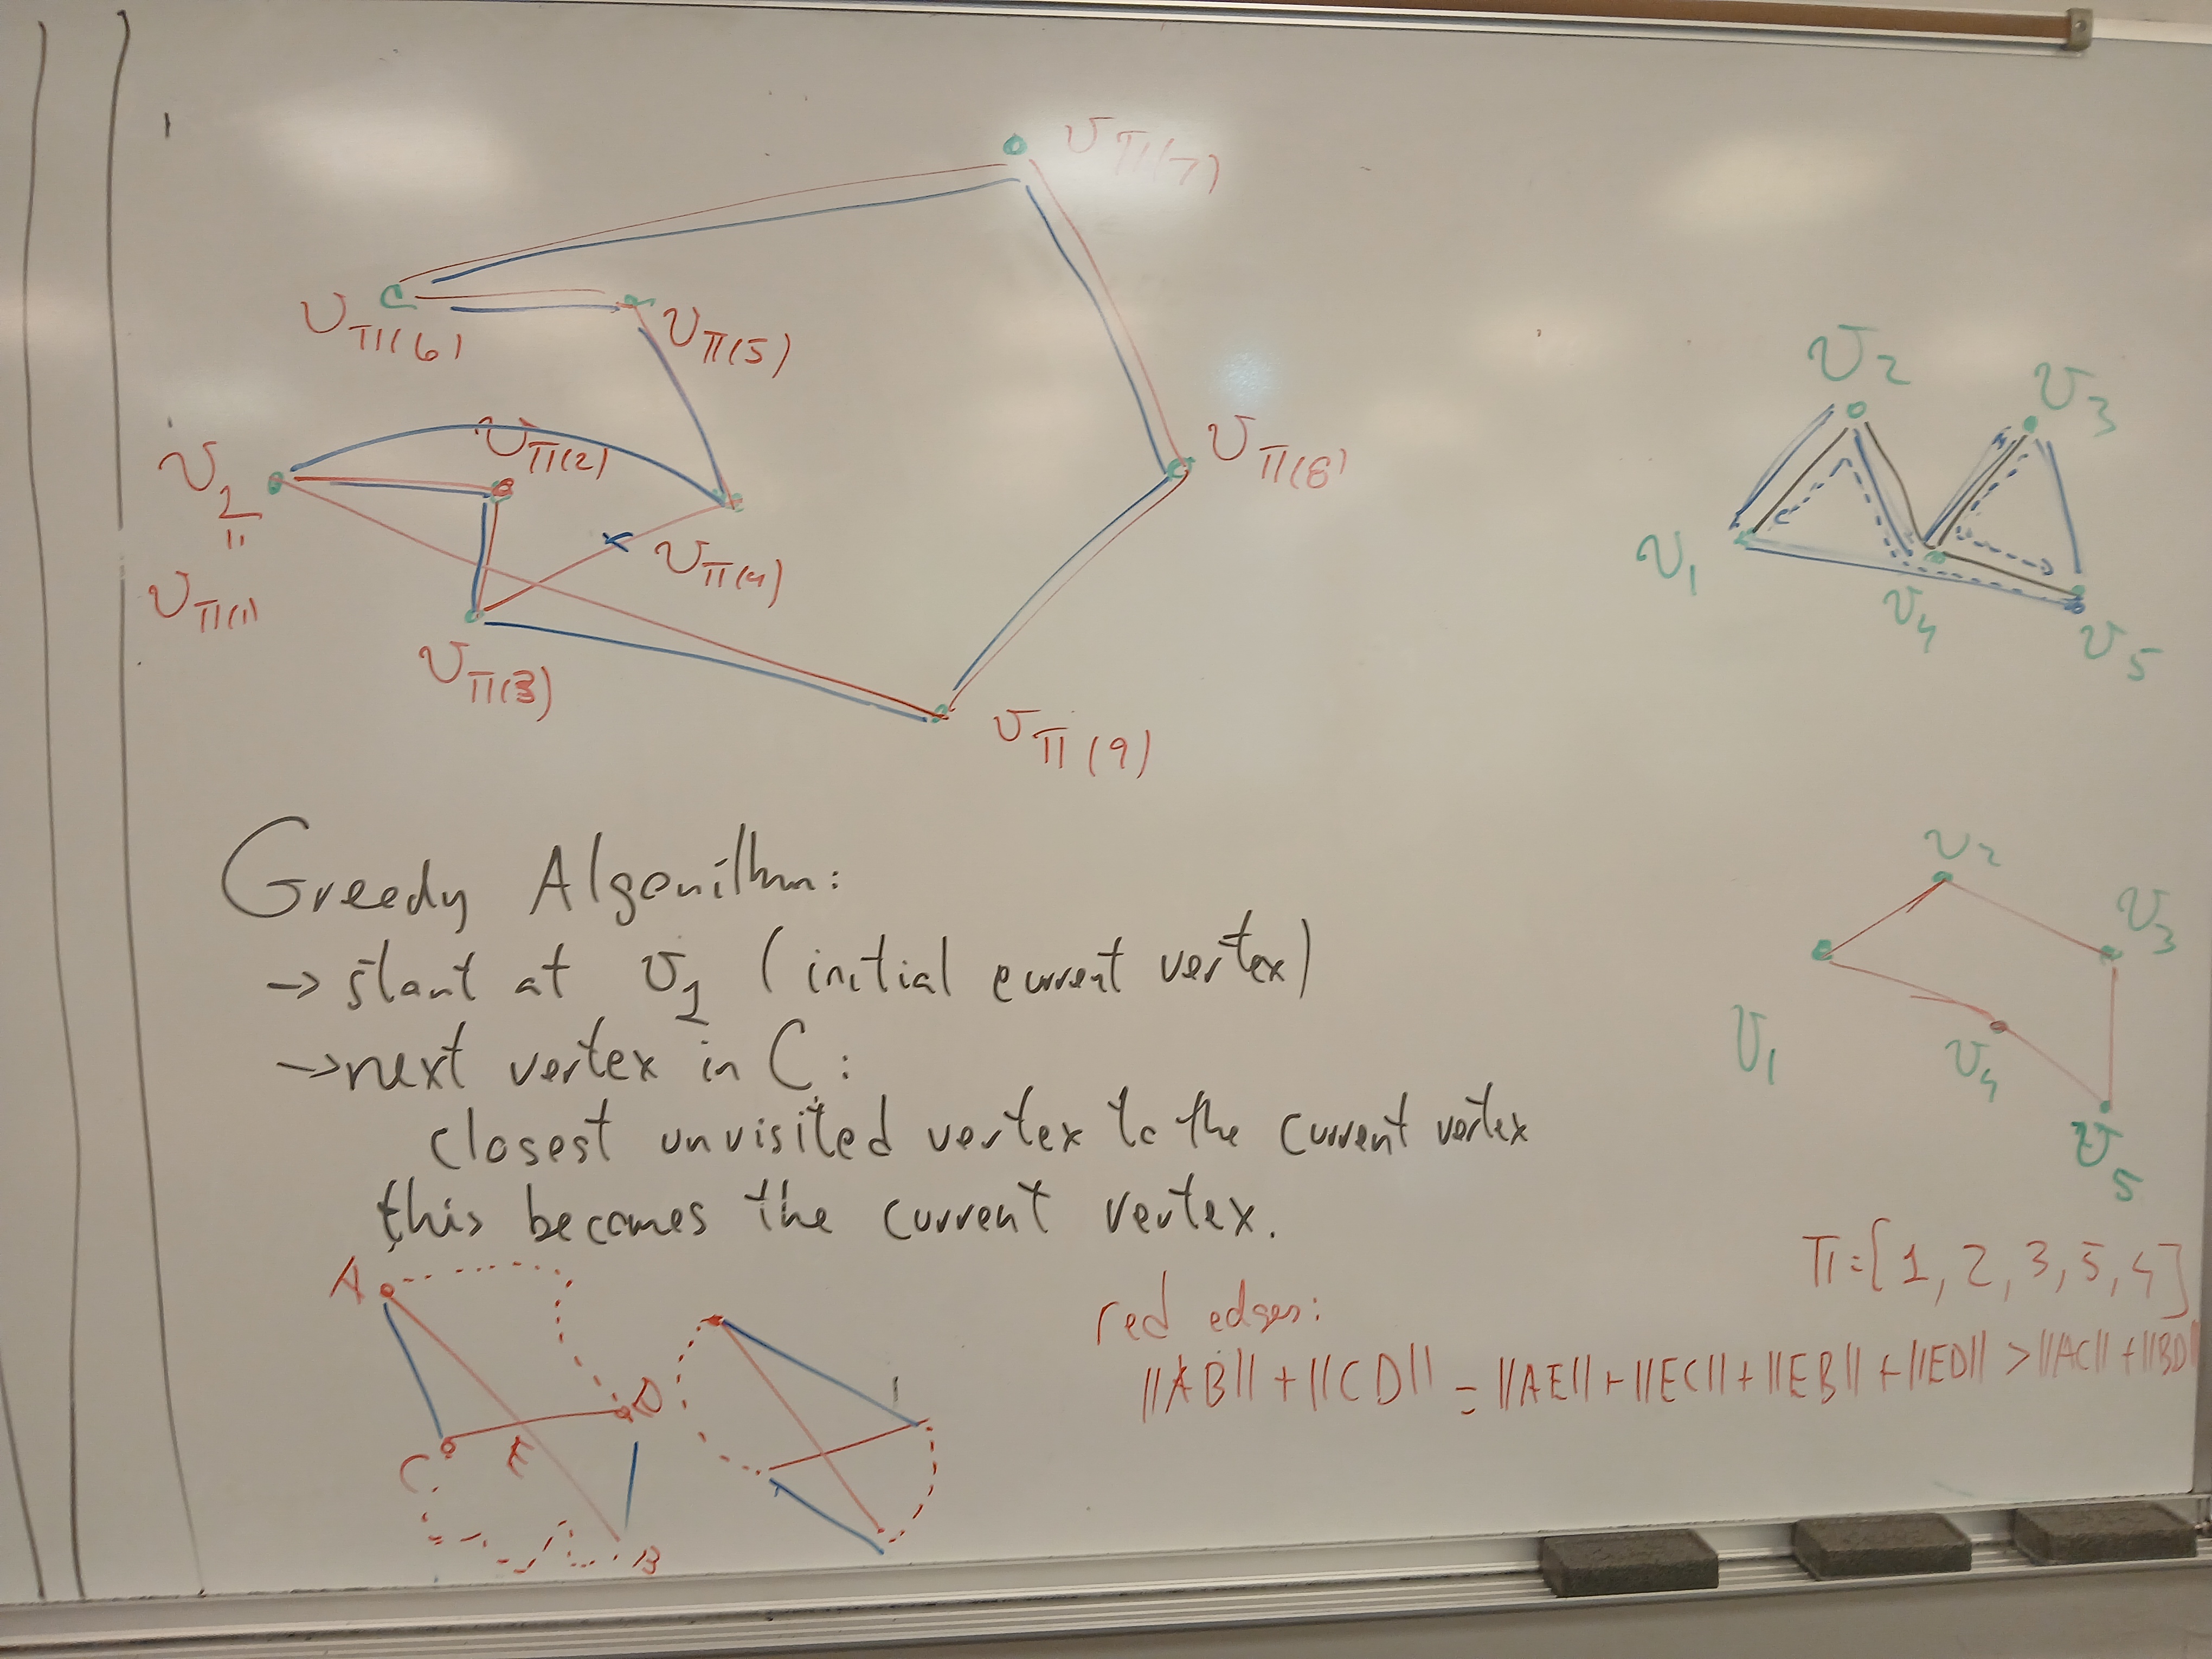 v_π(7)
v_π(6)
v_π(5)
v_2
v_3
v_1
v_4
v_5
v_1
=
v_π(1)
v_π(2)
v_π(8)
v_π(4)
v_π(3)
v_π(9)
Greedy Algorithm:
→ start at v_1 (initial current vertex)
→ next vertex in C:
closest unvisited vertex to the current vertex
this becomes the current vertex.
v_2
v_3
v_1
v_4
v_5
π=[1, 2, 3, 5, 4]
A
D
C
E
B
red edges:
||AB|| + ||CD|| = ||AE|| + ||EC|| + ||EB|| + ||ED|| > ||AC|| + ||BD||